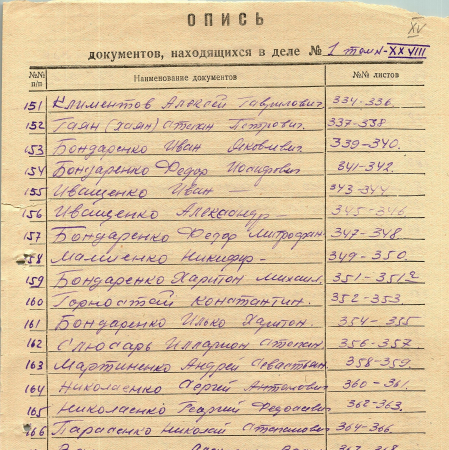 XV
ОПИСЬ
документов, находящихся в деле № 1 том-XXVIII
№№ п/п Наименование документов №№ листов
151 Климентов Алексей Гаврилович 334-336.
152 Гаян (Хаян) Степан Петрович. 337-338
153 Бондаренко Иван Яковлевич. 339-340.
154 Бондаренко Федор Иосифович 341-342.
155 Иващенко Иван — 343-344
156 Иващенко Александр 345-346.
157 Бондаренко Федор Митрофан. 347-348.
158 Малиенко Никифор - 349-350.
159 Бондаренко Харитон Михаил. 351-351а
160 Горностай Константин. 352-353.
161 Бондаренко Илько Харитон. 354-355
162 Слюсарь Илларион Степан. 356-357.
163 Мартиненко Андрей Севастьян. 358-359.
164 Николаенко Сергий Антонович 360-361.
165 Николаенко Георгий Федосевич 362-363.
166 Парасенко Николай Степанович 364-366.